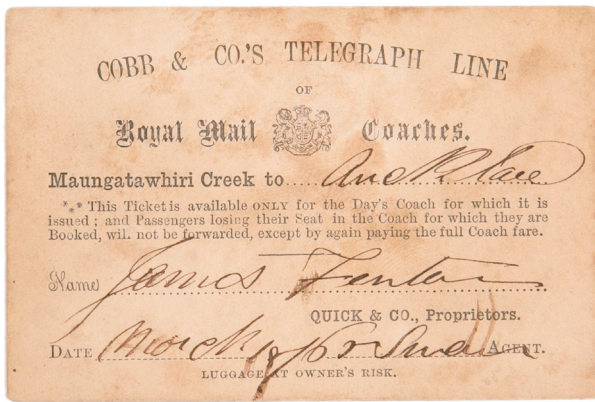 COBB & CO.'S TELEGRAPH LINE
OF
Royal Mail Coaches.
Maungatawhiri Creek to
*⁎* This Ticket is available ONLY for the Day's Coach for which it is
issued; and Passengers losing their Seat in the Coach for which they are
Booked, wil. not be forwarded, except by again paying the full Coach fare.
Name James Fenton
QUICK & CO., Proprietors.
DATE March AGENT.
LUGGAGE AT OWNER'S RISK.